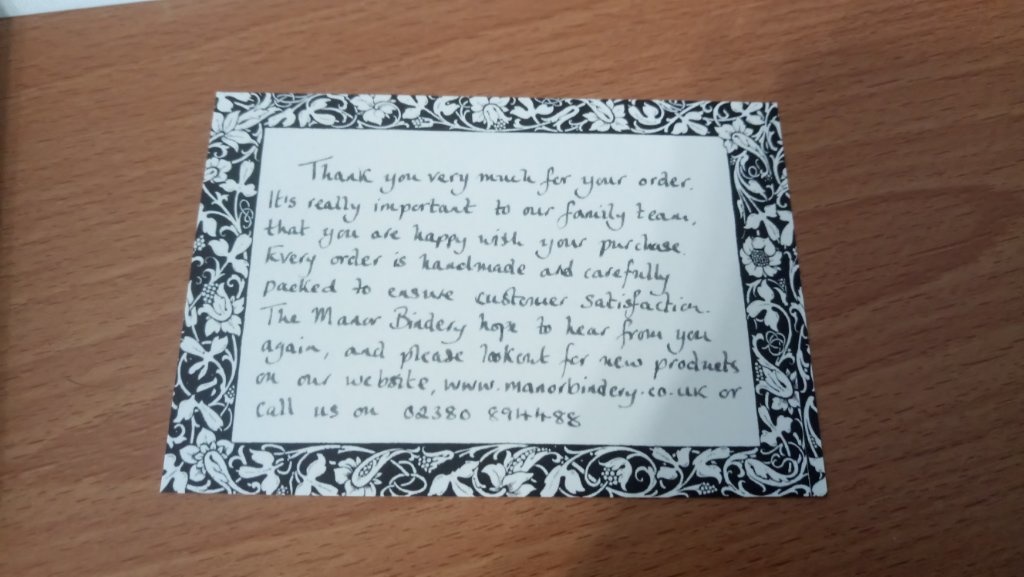 Thank you very much for your order.
It's really important to our family team,
that you are happy with your purchase.
Every order is handmade and carefully
packed to ensure customer satisfaction.
The Manor Bindery hope to hear from you
again, and please lookout for new products
on our website, www.manorbindery.co.uk or
call us on 02380 894488